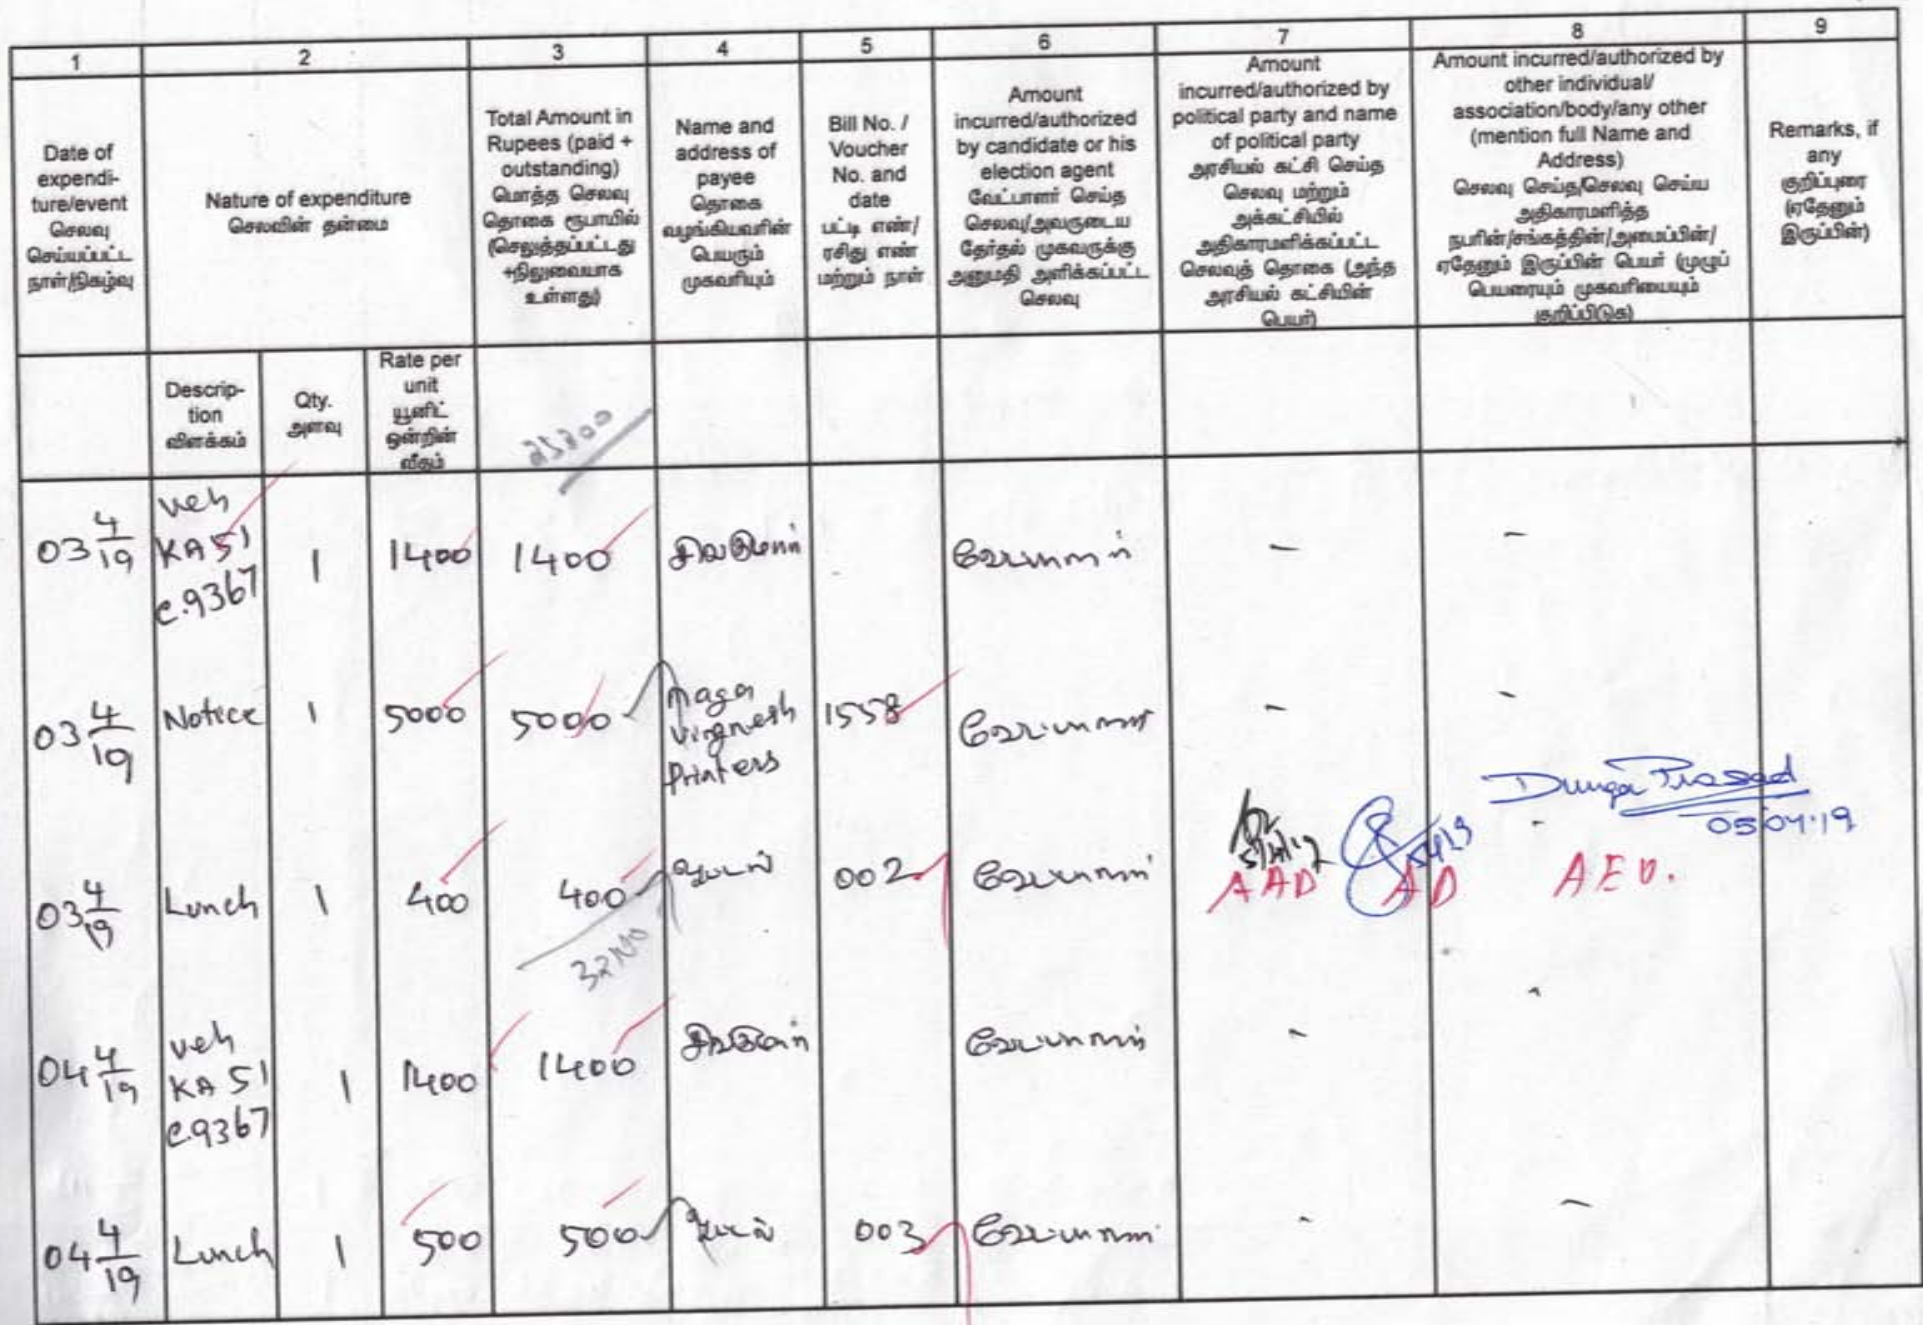 1 2 3 4 5 6 7 8 9
Date of
expendi-
ture/event
செலவு
செய்யப்பட்ட
நாள்/நிகழ்வு
Nature of expenditure
செலவின் தன்மை
Total Amount in
Rupees (paid +
outstanding)
மொத்த செலவு
தொகை ரூபாயில்
(செலுத்தப்பட்டது
+நிலுவையாக
உள்ளது)
Name and
address of
payee
தொகை
வழங்கியவரின்
பெயரும்
முகவரியும்
Bill No. /
Voucher
No. and
date
பட்டி எண்/
ரசிது எண்
மற்றும் நாள்
Amount
incurred/authorized
by candidate or his
election agent
வேட்பாளர் செய்த
செலவு/அவருடைய
தேர்தல் முகவருக்கு
அனுமதி அளிக்கப்பட்ட
செலவு
Amount
incurred/authorized by
political party and name
of political party
அரசியல் கட்சி செய்த
செலவு மற்றும்
அக்கட்சியில்
அதிகாரமளிக்கப்பட்ட
செலவுத் தொகை (அந்த
அரசியல் கட்சியின்
பெயர்)
Amount incurred/authorized by
other individual/
association/body/any other
(mention full Name and
Address)
செலவு செய்த/செலவு செய்ய
அதிகாரமளித்த
நபரின்/சங்கத்தின்/அமைப்பின்/
ஏதேனும் இருப்பின் பெயர் (முழுப்
பெயரையும் முகவரியையும்
குறிப்பிடுக)
Remarks, if
any
குறிப்புரை
(ஏதேனும்
இருப்பின்)
Descrip-
tion
விளக்கம்
Qty.
அளவு
Rate per
unit
யூனிட்
ஒன்றின்
வீதம்
03 4/19 veh KA 51 c.9367 1 1400 1400 சிவகுமார் வேட்பாளர் - -
03 4/19 Notice 1 5000 5000 Naga Vignesh Printers 1558 வேட்பாளர் - -
Durga Prasad
05/04.19
03 4/19 Lunch 1 400 400 002 வேட்பாளர் -
AAD AD AEO.
04 4/19 veh KA 51 c.9367 1 1400 1400 சிவகுமார் வேட்பாளர் - -
04 4/19 Lunch 1 500 500 003 வேட்பாளர் - -